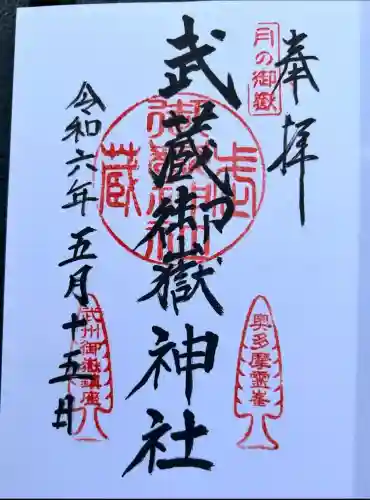 奉拝
月の御嶽
武蔵御嶽神社
武蔵
御嶽神社
奥多摩霊峯
令和六年五月十五日
武州御嶽鎮座